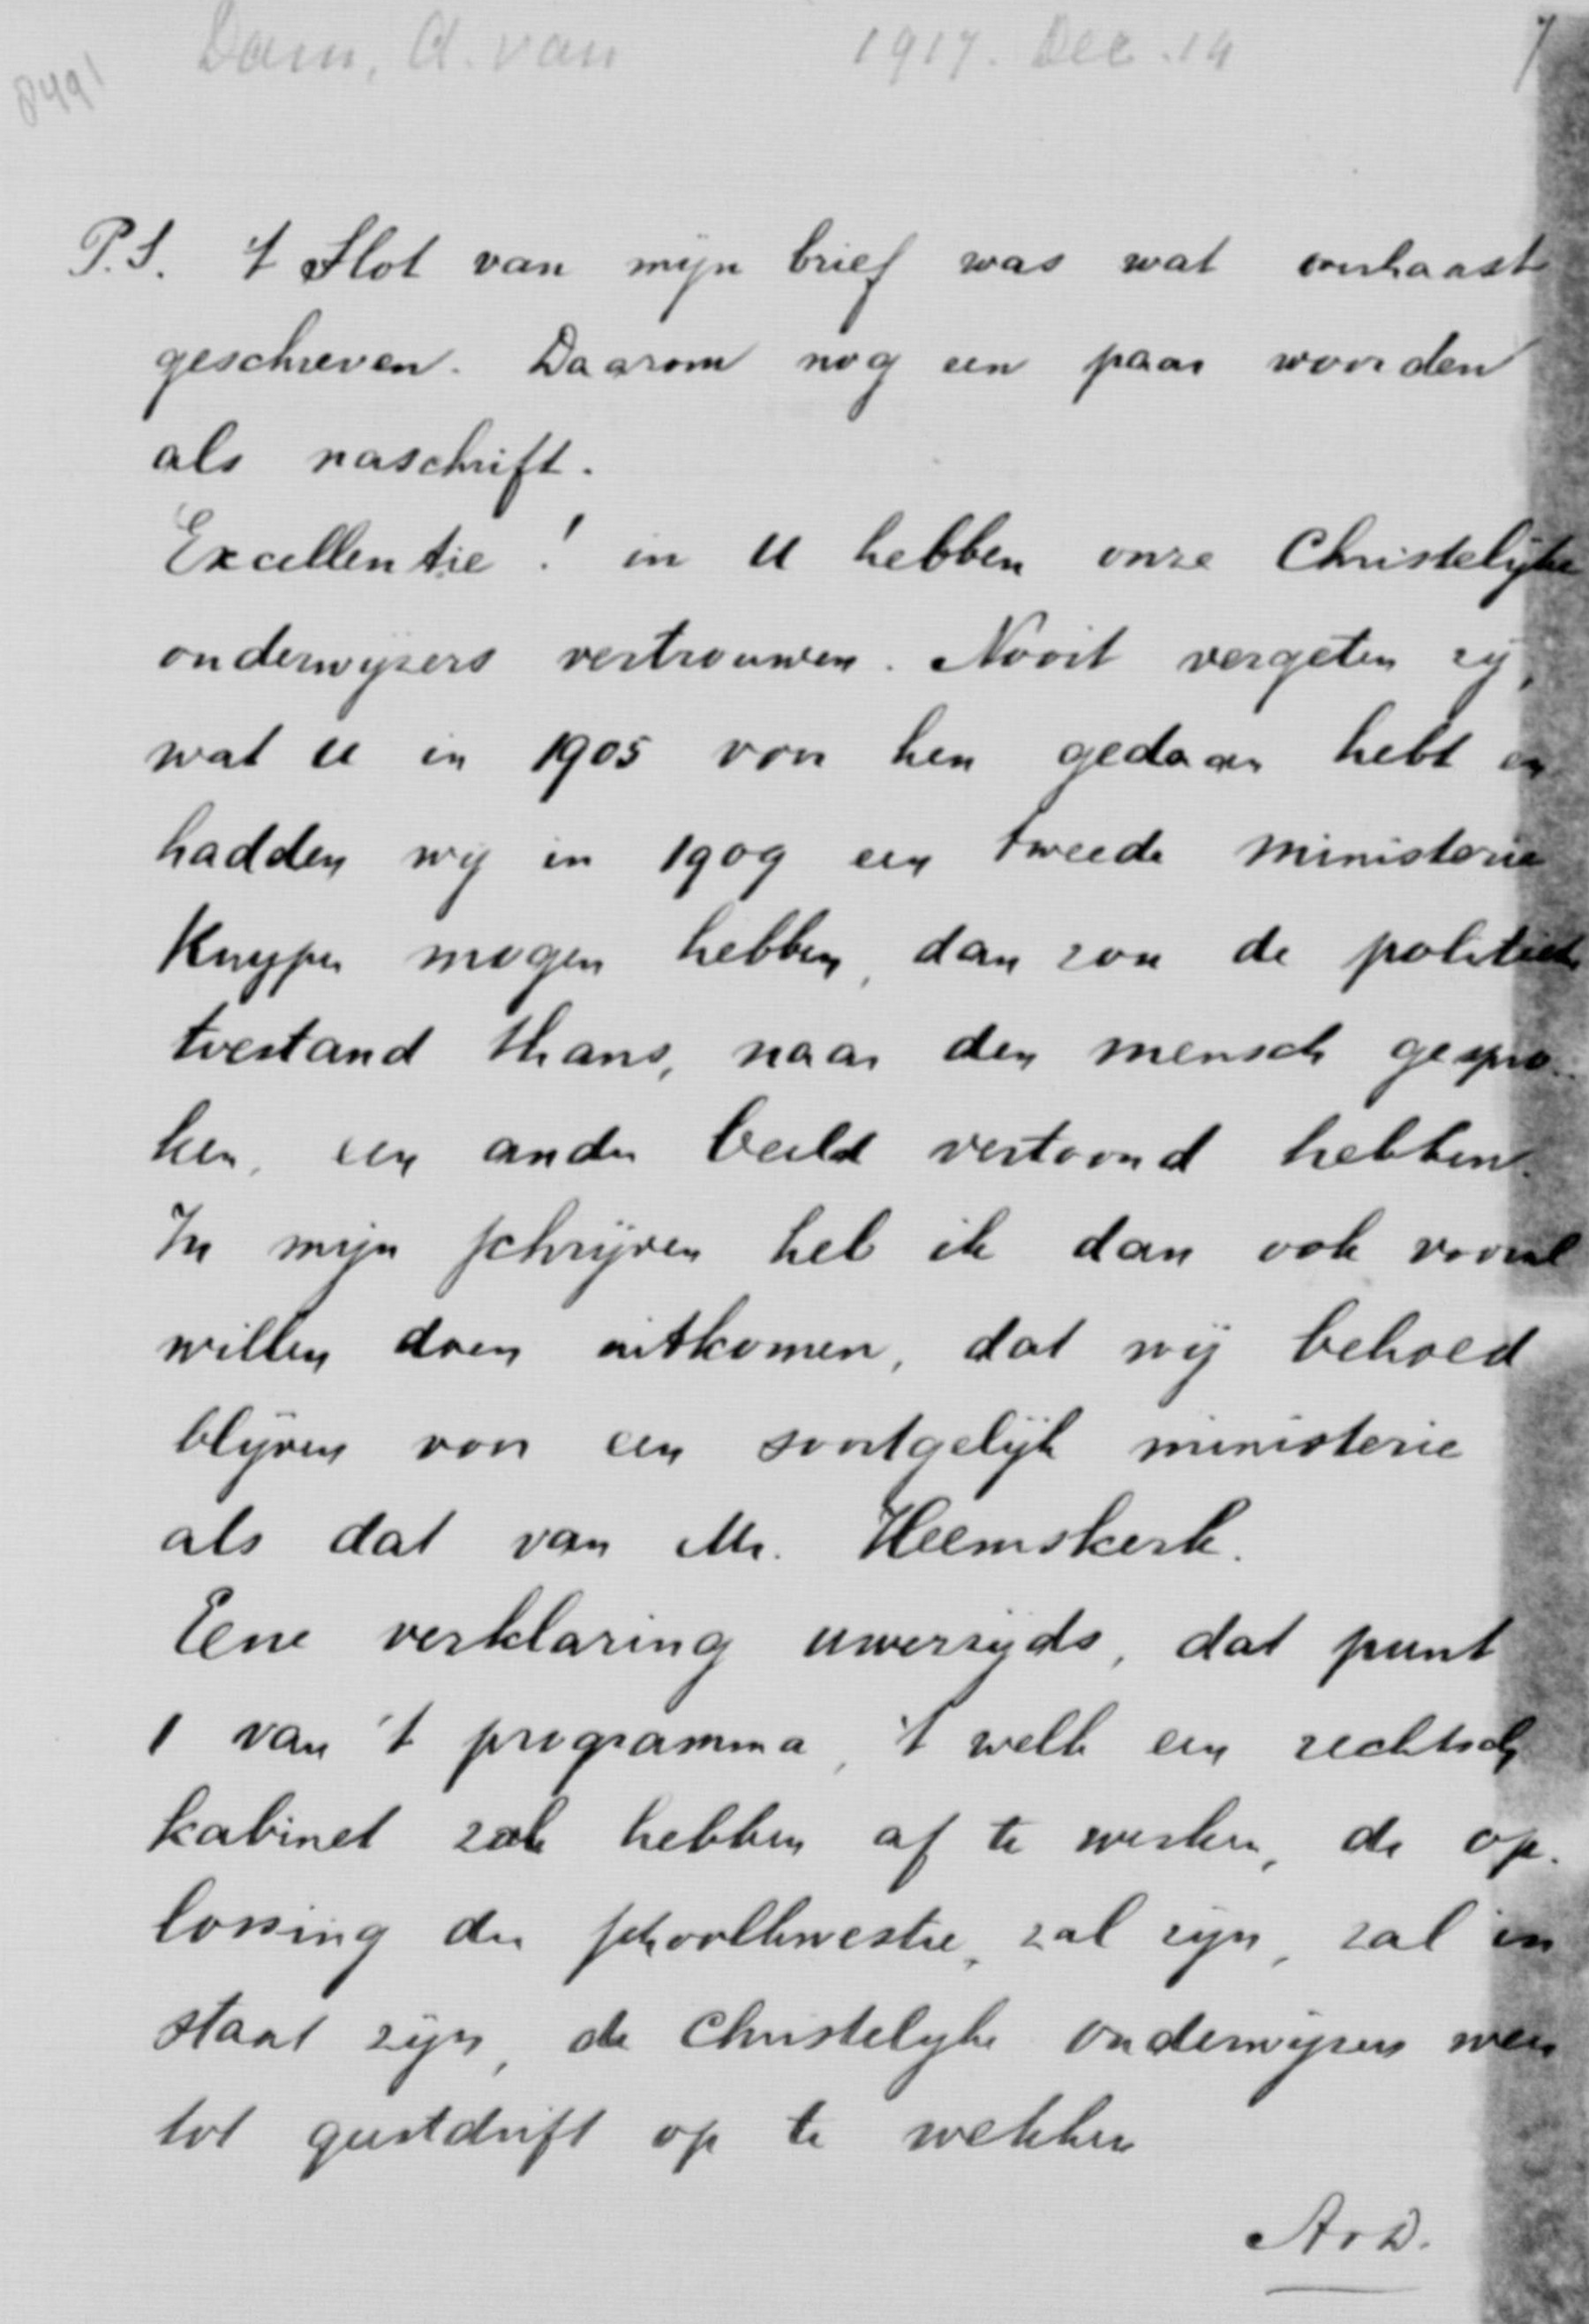 Dam, A. van 1917. Dec. 14
8491
P.S. 't Slot van mijn brief was wat overhaast
geschreven. Daarom nog een paar woorden
als naschrift.
Excellentie! in U hebben onze Christelijke
onderwijzers vertrouwen. Nooit vergeten zij,
wat U in 1905 voor hen gedaan hebt en
hadden wij in 1909 een tweede ministerie
Kuyper mogen hebben, dan zou de politiek
toestand thans, naar den mensch gespro-
ken, een ander beeld vertoond hebben.
In mijn schrijven heb ik dan ook vooral
willen doen uitkomen, dat wij behoed
blijven voor een soortgelijk ministerie
als dat van Mr. Heemskerk.
Eene verklaring uwerzijds, dat punt
1 van 't programma, 't welk een rechtsch
kabinet zal hebben af te werken, de op-
lossing der schoolkwestie, zal zijn, zal in
staat zijn, de Christelijke onderwijzers weer
tot geestdrift op te wekken
AvD.